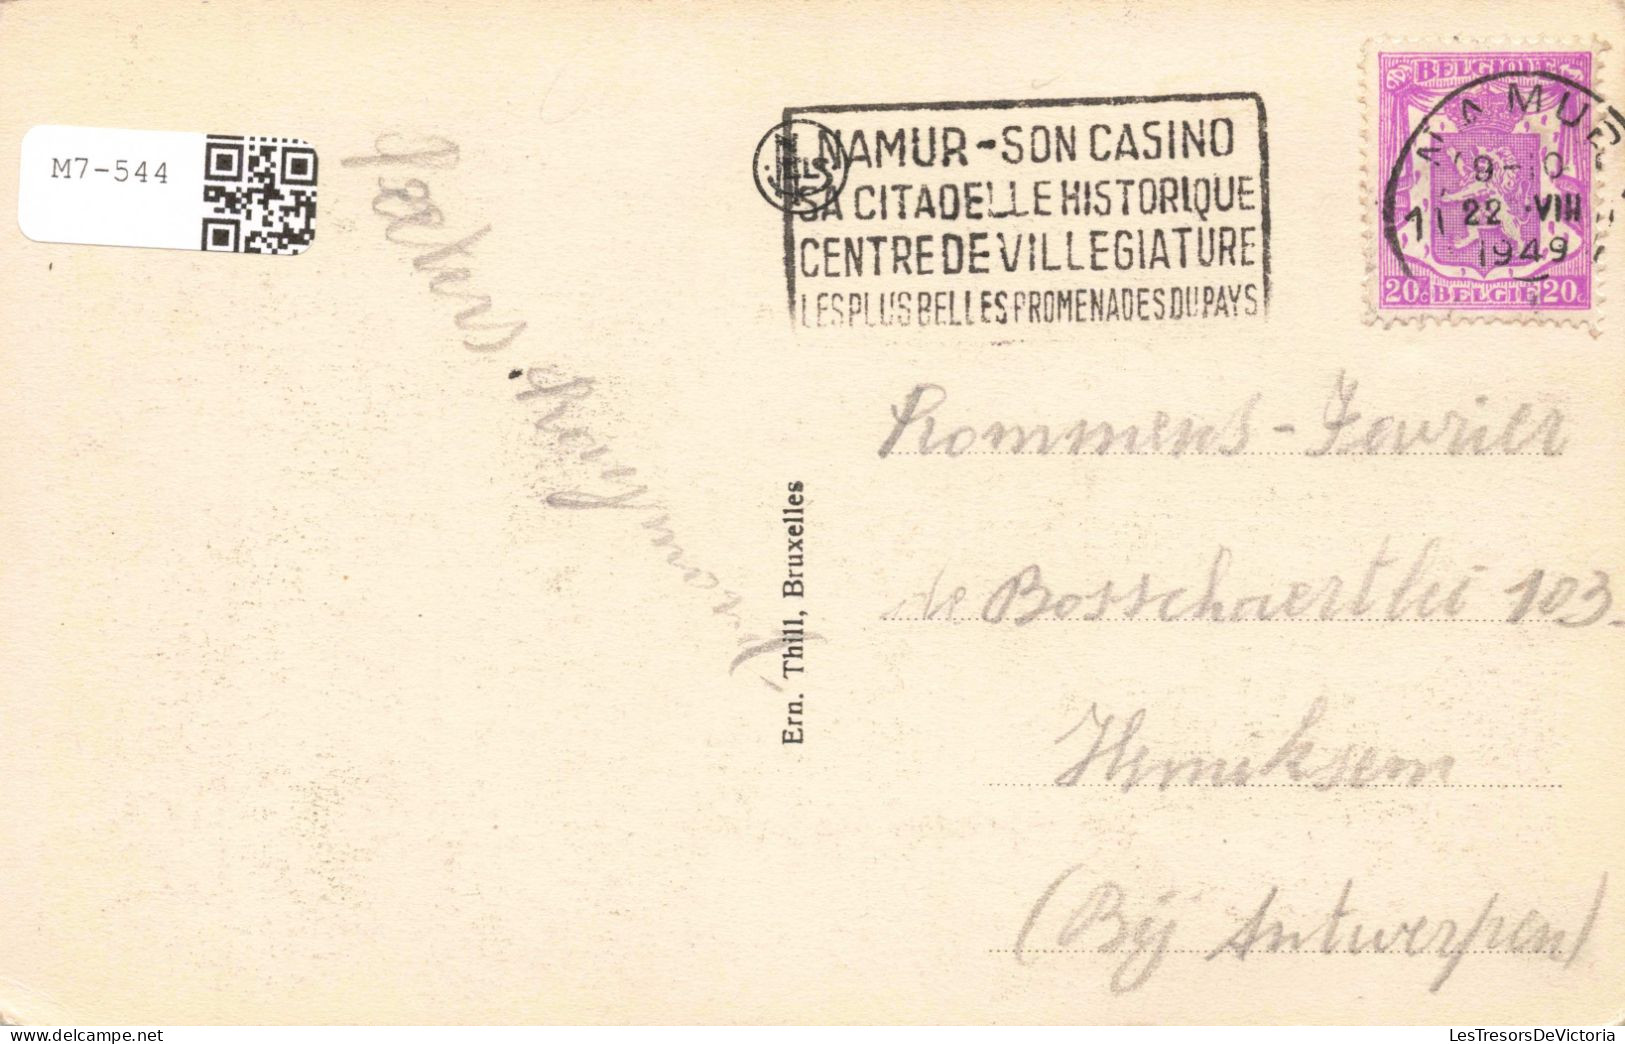 M7-544
NAMUR-SON CASINO
SA CITADELLE HISTORIQUE
CENTRE DE VILLEGIATURE
LES PLUS BELLES PROMENADES DU PAYS
BELGIQUE
NAMUR
9-10
22 VIII
1949
20c BELGIE 20c
Peeters Raymond
Ern. Thill, Bruxelles
Rommens - Fevrier
de Bosschaertlei 103
Hemiksem
(Bij Antwerpen)
LesTresorsDeVictoria.com